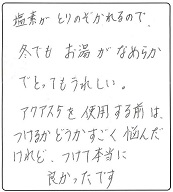 塩素が とりのぞかれるので、
冬でも お湯 が なめらか
で とっても うれしい。
アクアスケを 使用する前は、
つけるか どうか すごく 悩んだ
けれど、つけて 本当に
良かった です